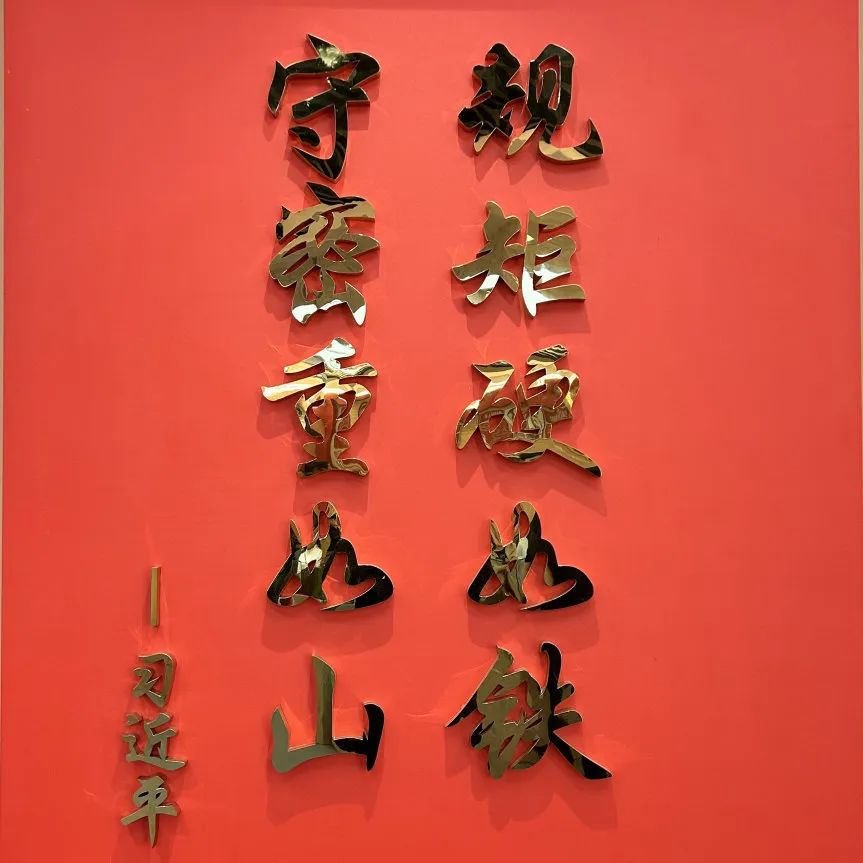 规矩硬如铁
守密重如山
—习近平